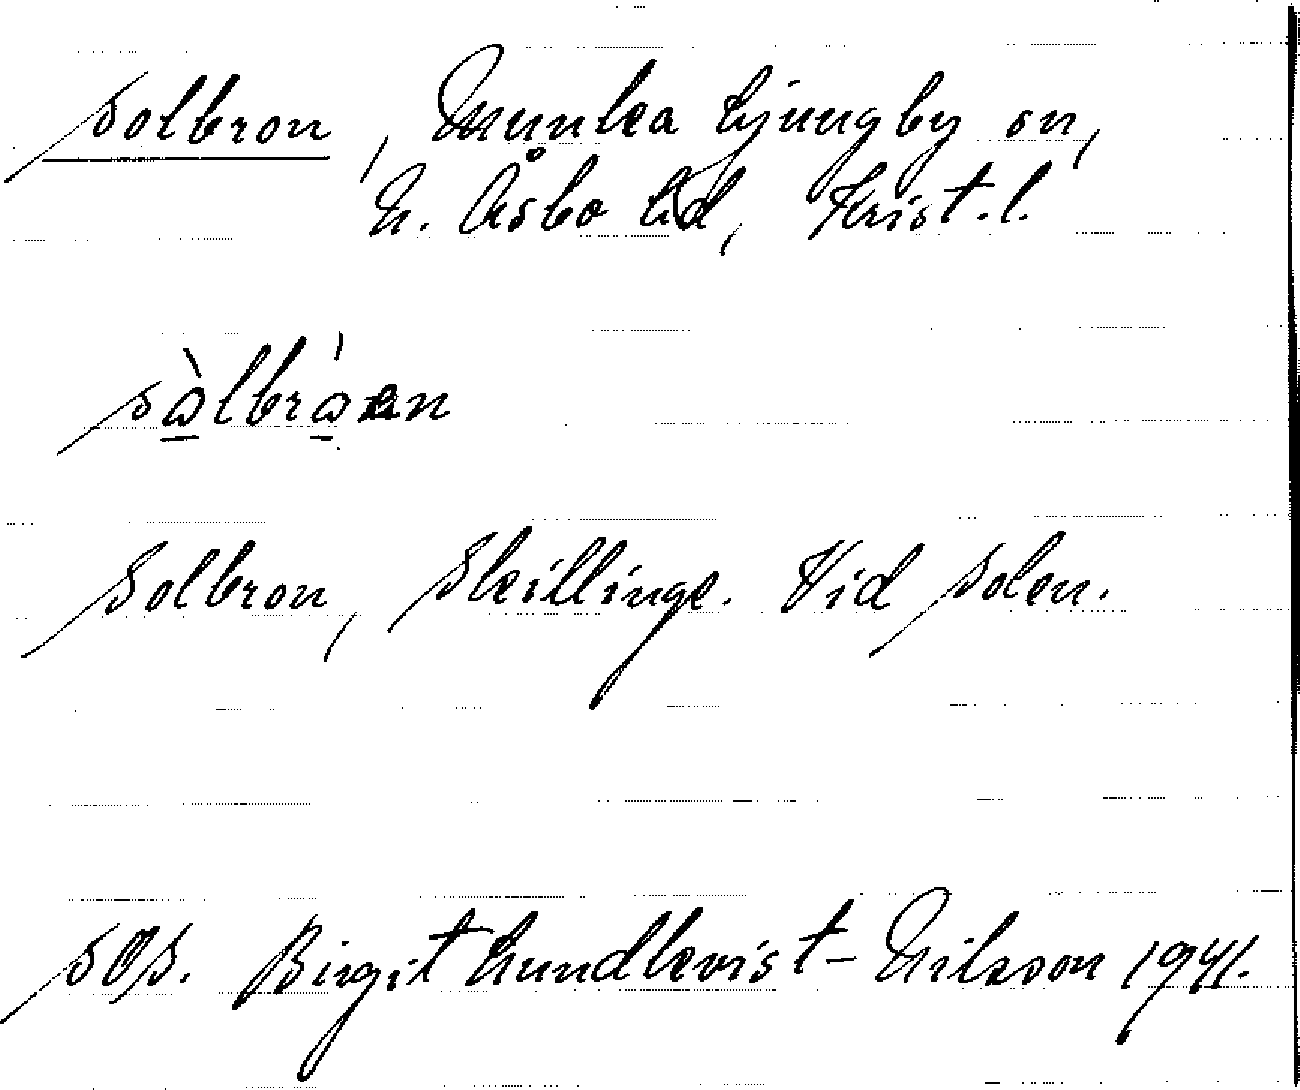 Solbron, Munka Ljungby sn,
N. Åsbo hd, Krist. l.
sòlbróen
Solbron, Skillinge. Vid Solen.
SOS. Birgit Lundkvist-Nilsson 1941.